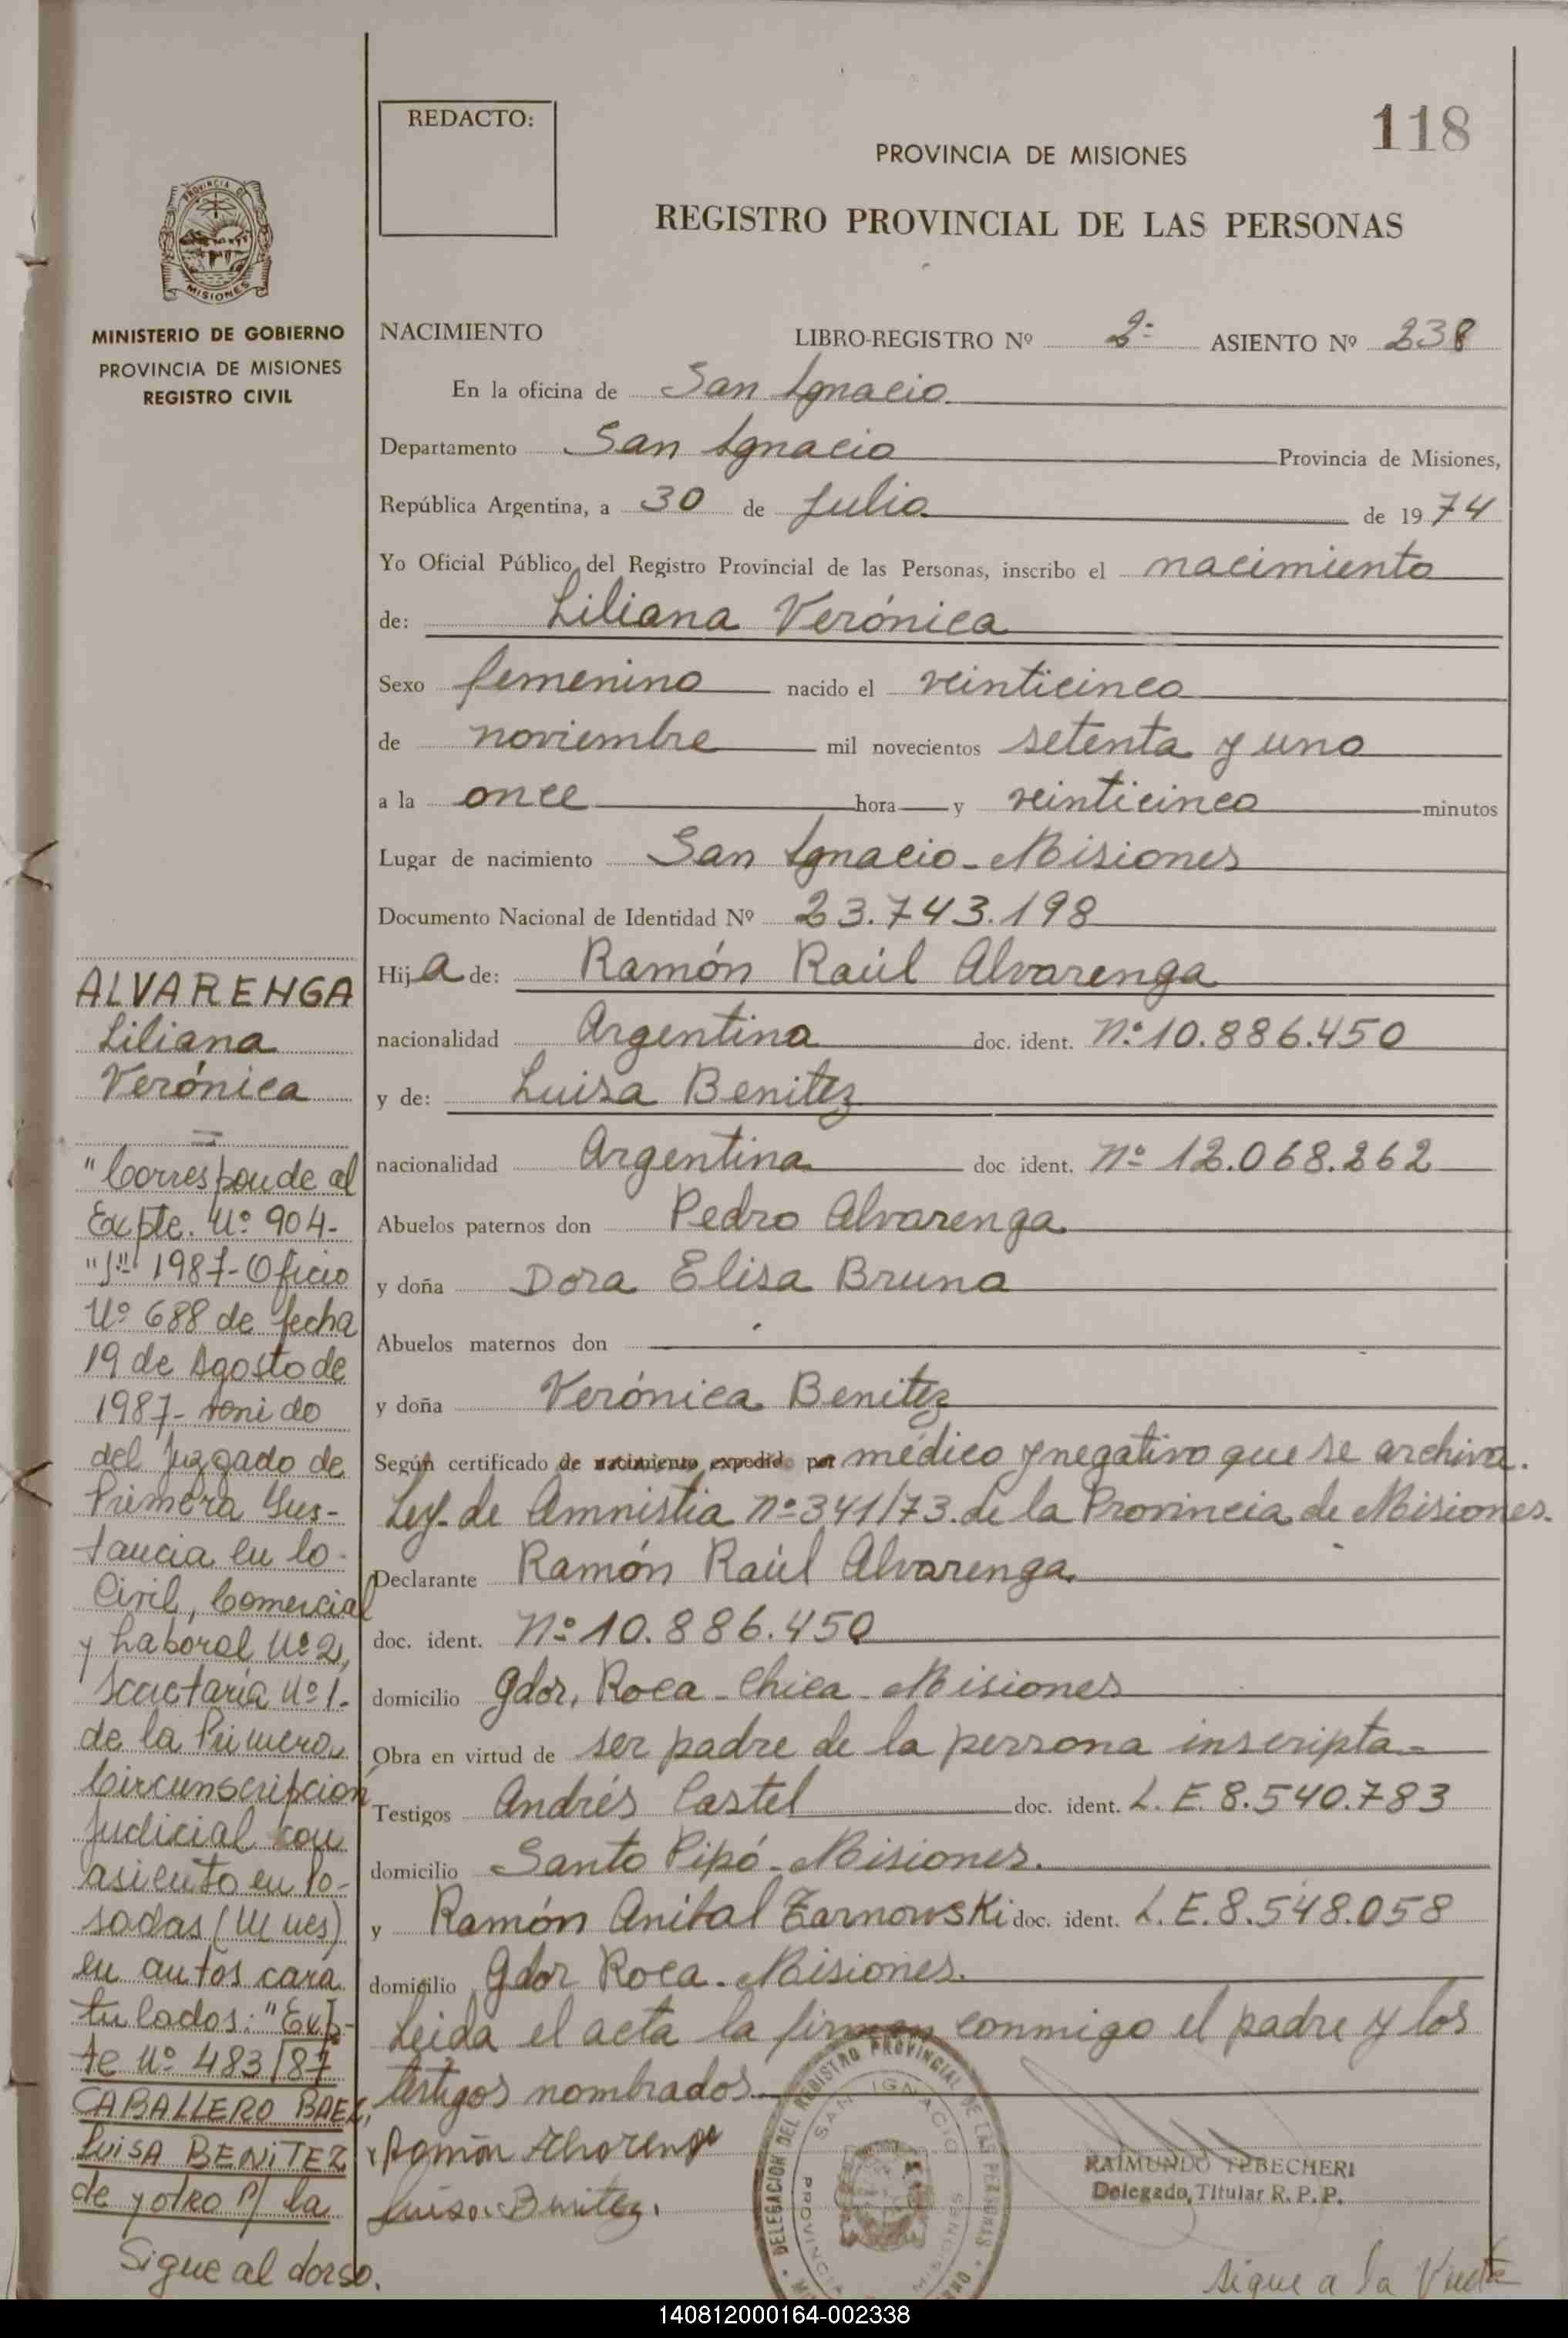 REDACTO:
118
PROVINCIA DE MISIONES
REGISTRO PROVINCIAL DE LAS PERSONAS
PROVINCIA DE
MISIONES
MINISTERIO DE GOBIERNO
PROVINCIA DE MISIONES
REGISTRO CIVIL
NACIMIENTO LIBRO-REGISTRO Nº 2º ASIENTO Nº 238
En la oficina de San Ignacio
Departamento San Ignacio Provincia de Misiones,
República Argentina, a 30 de Julio de 1974
Yo Oficial Público del Registro Provincial de las Personas, inscribo el nacimiento
de: Liliana Verónica
Sexo femenino nacido el veinticinco
de noviembre mil novecientos setenta y uno
a la once hora y veinticinco minutos
Lugar de nacimiento San Ignacio - Misiones
Documento Nacional de Identidad Nº 23.743.198
Hija de: Ramón Raúl Alvarenga
nacionalidad Argentino doc. ident. Nº 10.886.450
y de: Luisa Benitez
nacionalidad Argentina doc ident. Nº 12.068.262
Abuelos paternos don Pedro Alvarenga
y doña Dora Elisa Bruno
Abuelos maternos don
y doña Verónica Benitez
Según certificado de nacimiento expedido por médico y negativo que se archiva.
Ley de Amnistia Nº 341/73 de la Provincia de Misiones.
Declarante Ramón Raúl Alvarenga
doc. ident. Nº 10.886.450
domicilio Gdor, Roca - Chica - Misiones
Obra en virtud de ser padre de la persona inscripta
Testigos Andrés Castel doc. ident. L.E. 8.540.783
domicilio Santo Pipó - Misiones.
y Ramón Anibal Zarnowski doc. ident. L.E. 8.548.058
domicilio Gdor Roca - Misiones.
Leida el acta la firman conmigo el padre y los
testigos nombrados
Ramón Alvarenga
Luisa Benitez.
DELEGACION DEL REGISTRO PROVINCIAL DE LAS PERSONAS
SAN IGNACIO
PROVINCIA
MISIONES
RAIMUNDO TEBECHERI
Delegado Titular R. P. P.
Sigue a la Vuelta
ALVARENGA
Liliana
Verónica
"Corresponde al
Expte. Nº 904-
"J" 1987 - Oficio
Nº 688 de fecha
19 de Agosto de
1987 - venido
del Juzgado de
Primera Ins-
tancia en lo
Civil, Comercial
y Laboral Nº 2,
Secretaría Nº 1-
de la Primera
Circunscripción
Judicial con
asiento en Po-
sadas (Mnes)
en autos cara
tulados: "Exp-
te Nº 483/87
CABALLERO BAEZ,
LUISA BENITEZ
de y otro P/ la
Sigue al dorso.
140812000164-002338